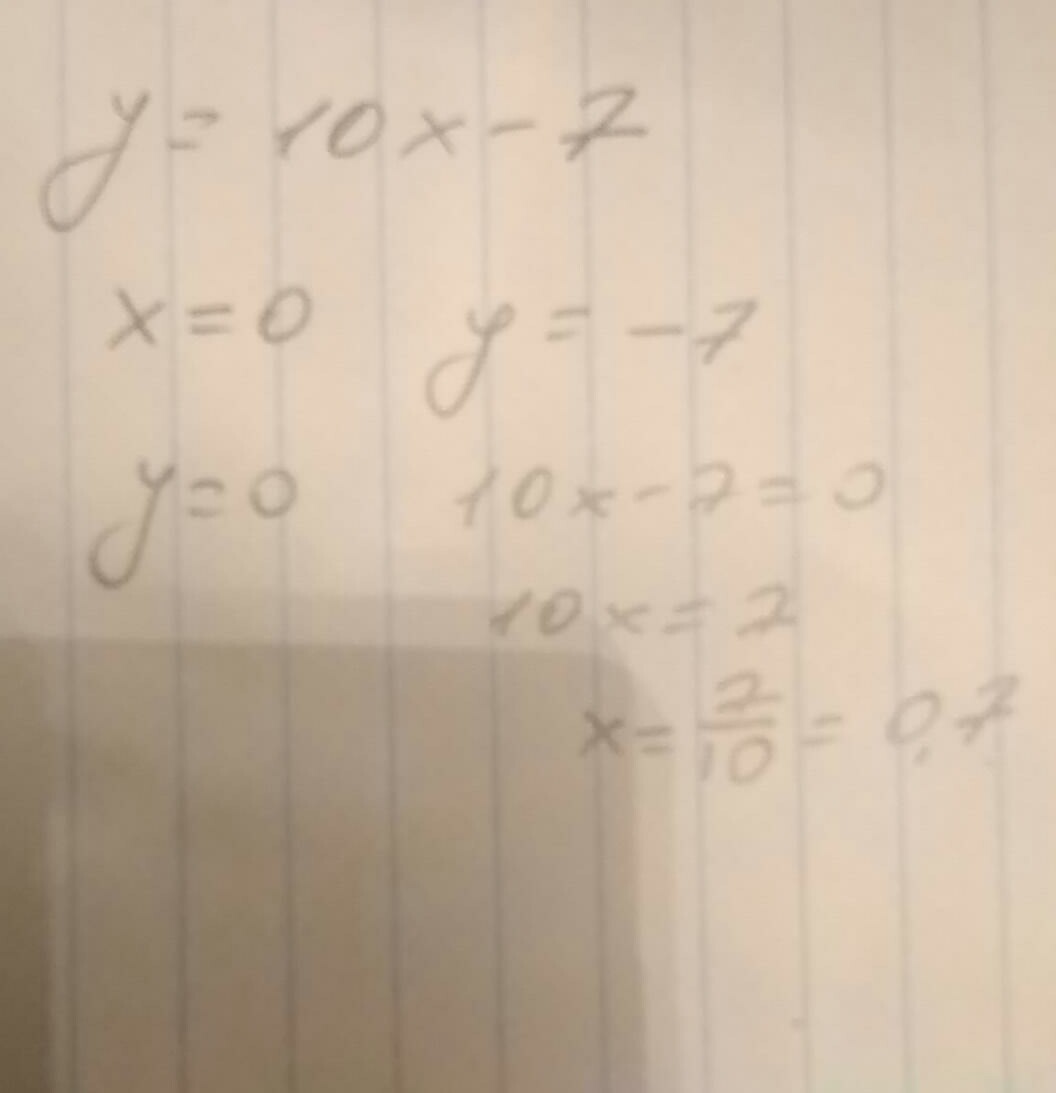 y = 10x - 7
x = 0 y = -7
y = 0 10x - 7 = 0
10x = 7
x = 7/10 = 0.7